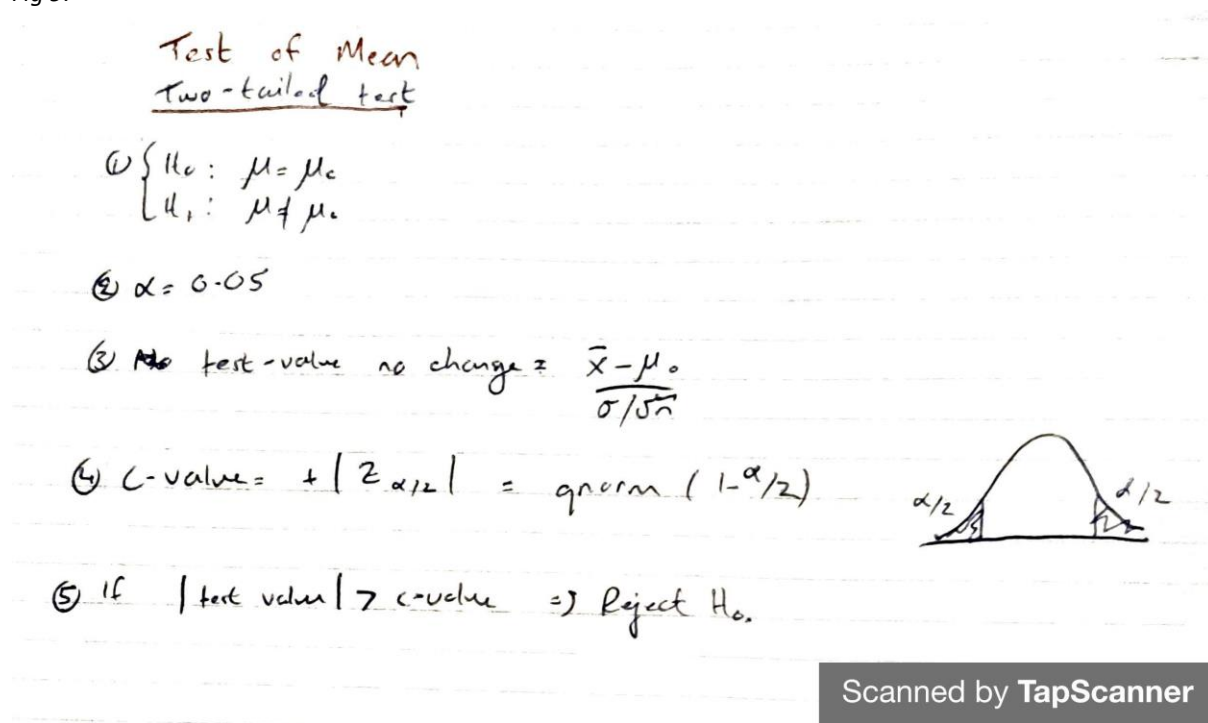 Fig 3:
Test of Mean
Two-tailed test
① { H₀ : μ = μ₀
H₁ : μ ≠ μ₀
② α = 0.05
③ test-value no change = x̄ - μ₀ / σ/√n
④ C-value = + | Z α/2 | = qnorm ( 1-α/2)
α/2 α/2
⑤ If | test value | > c-value => Reject H₀.
Scanned by TapScanner